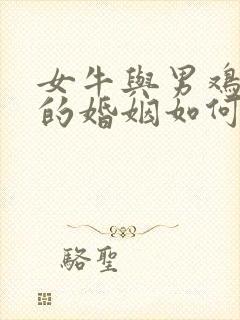 女牛與男鸡
的婚姻如何
駱聖